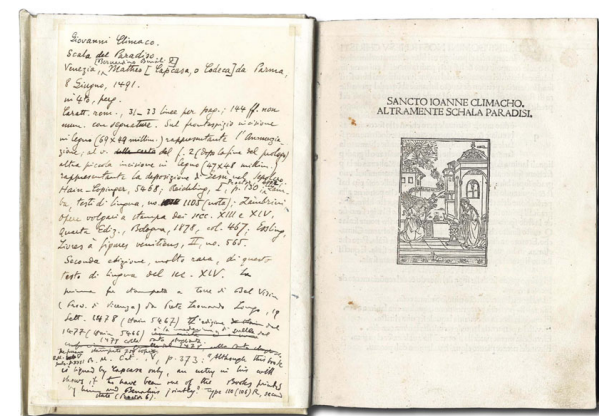 Giovanni Climaco.
Scala del Paradiso.
[Bernardino Benali e]
Venezia, Mattheo [Capcasa, o Codeca] da Parma,
8 Giugno, 1491.
in 4to, perg.
Caratt. rom., 31-33 linee per pag.; 144 ff. non
num. con segnature. Sul frontespizio incisione
in legno (69x49 millim.) rappresentante l'Annunzia-
zione; al v. del f. 2 (dopo la fine del prologo)
altra piccola incisione in legno (47x48 millim.)
rappresentante la deposizione di Gesù nel sepolcro.
Hain-Copinger, 5468; Reichling, I, p. 130;
testi di lingua, no. 1108 (nota); Zambrini,
Opere volgari a stampa dei secc. XIII e XIV,
quarta Ediz., Bologna, 1878, col. 467; Essling,
Livres à figures vénitiens, II, no. 565.
Seconda edizione, molto rara, di questo
testo di lingua del sec. XIV. La
prima fu stampata a Torre di Bel Vicin
(Prov. di Vicenza) da Leonardo Longo, 19
Sett. 1478 (Hain 5467)
1477 (Hain 5466)
B. M. Cat. p. 373: "Although this book
is signed by Capcasa only, an entry in his will
shows it to have been one of the Books printed
by him and Benalius jointly." Type 110 (108) R, second
state (Proctor 6).
SANCTO IOANNE CLIMACHO.
ALTRAMENTE SCHALA PARADISI.